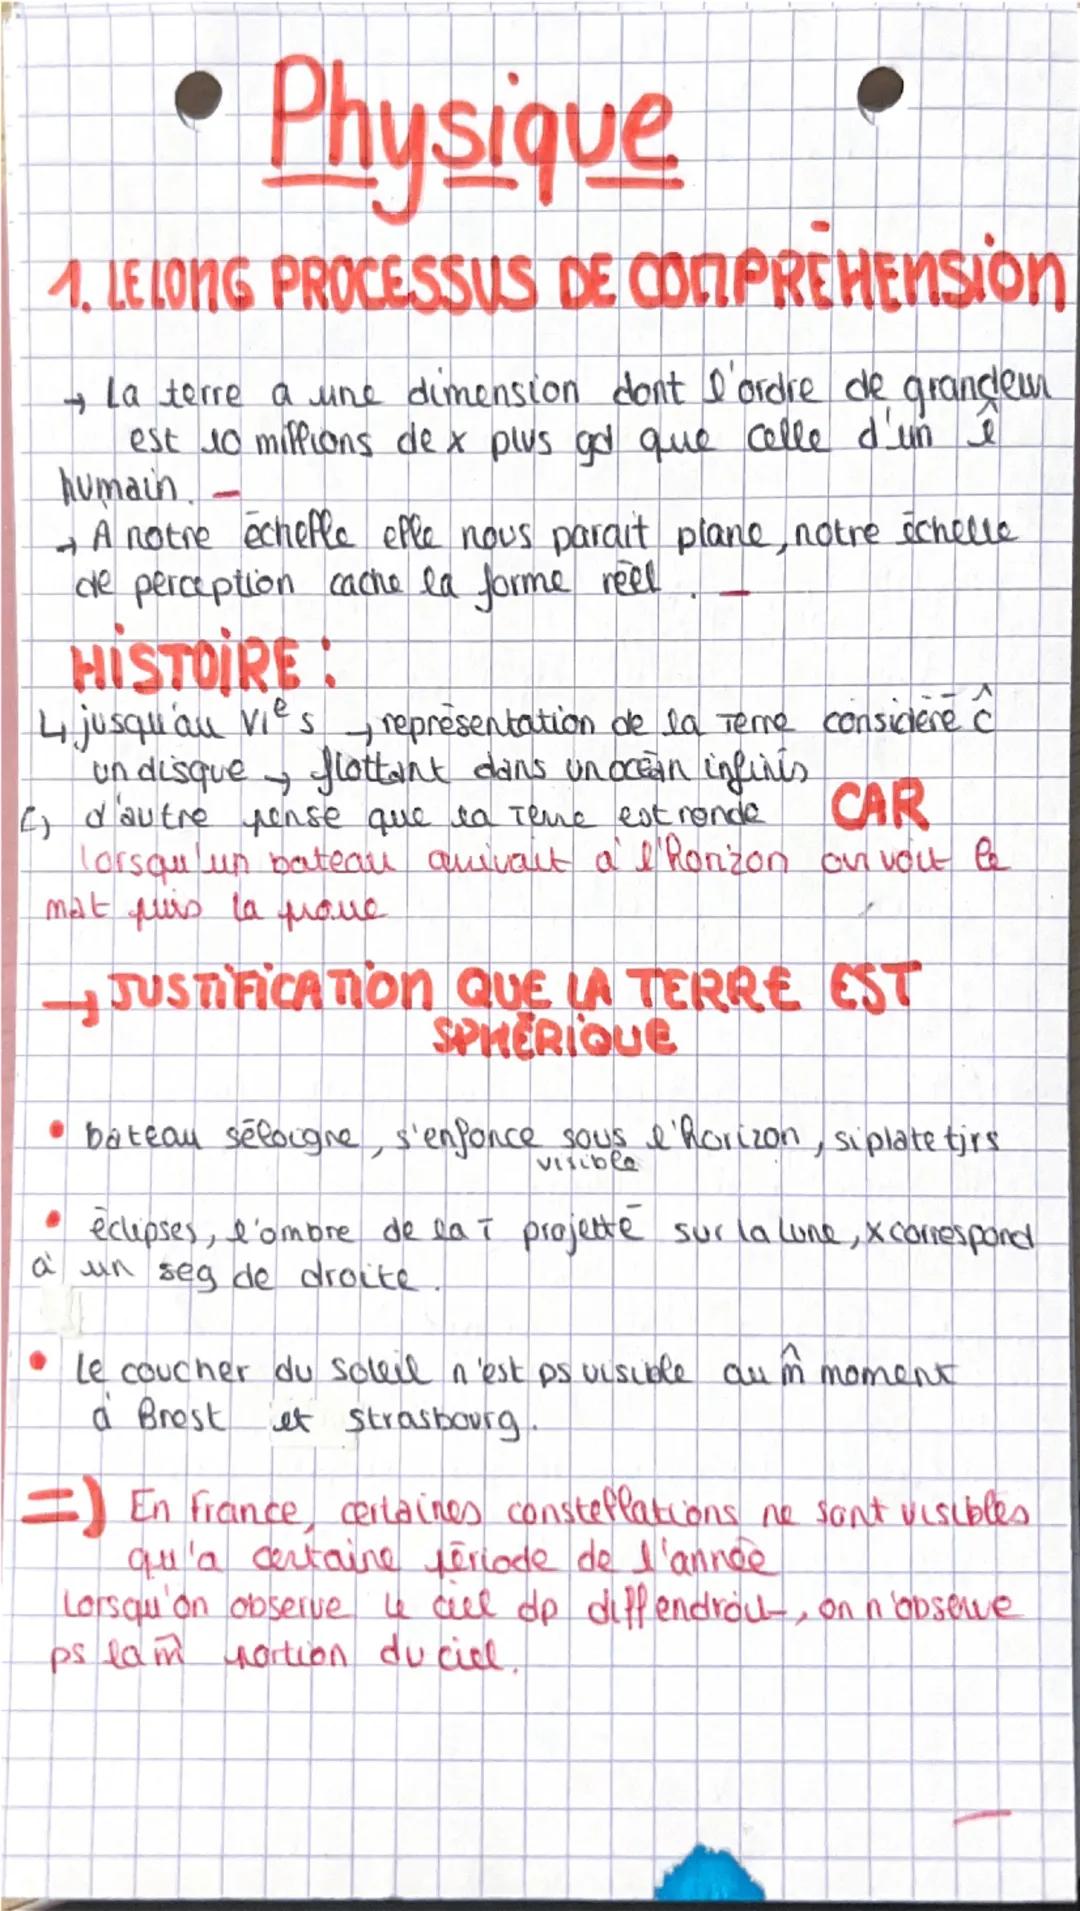 Physique
1. LE LONG PROCESSUS DE COMPRÉHENSION
→ La terre a une dimension dont l'ordre de grandeur
est 10 millions de x plus gd que celle d'un ê
humain.
→ A notre échelle elle nous parait plane, notre échelle
de perception cache la forme réel.
HISTOIRE :
↳ jusqu'au VIe s → représentation de la Terre considéré ĉ
un disque → flottant dans un océan infinis
↳ d'autre pense que la Terre est ronde CAR
lorsqu'un bateau arrivait à l'Horizon on voit le
mat puis la proue
→ JUSTIFICATION QUE LA TERRE EST
SPHÉRIQUE
• bateau s'éloigne, s'enfonce sous l'horizon, si plate tjrs
visible
• éclipses, l'ombre de la T projetté sur la lune, x correspond
à un seg de droite.
• Le coucher du soleil n'est ps visible au m̂ moment
à Brest et Strasbourg.
=) En France, certaines constellations ne sont visibles
qu'a certaine période de l'année
Lorsqu'on observe le ciel dp diff endroit, on n'observe
ps la m̂ portion du ciel.